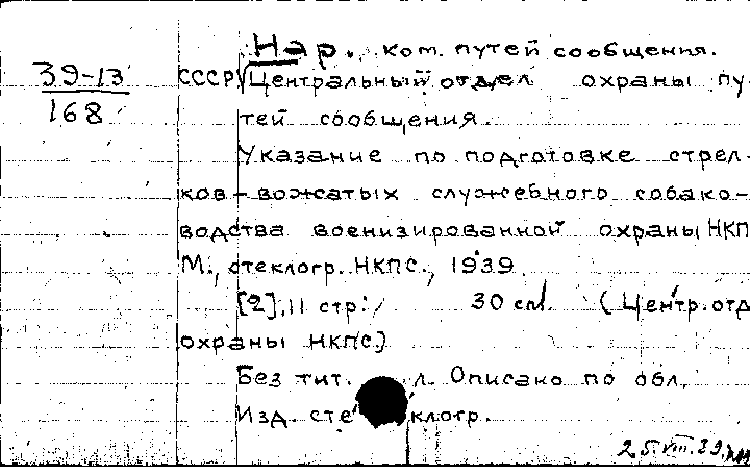 Нар. ком. путей сообщения.
39-13
168
СССР. Центральный отдел охраны пу-
тей сообщения.
Указание по подготовке стрел-
ков-вожатых служебного собако-
водства военизированной охраны НКП
М., стеклогр. НКПС., 1939.
[2], 11 стр. 30 см. (Центр. отд
охраны НКПС)
Без тит. л. Описано по обл.
Изд. стеклогр.
25.VIII.39.